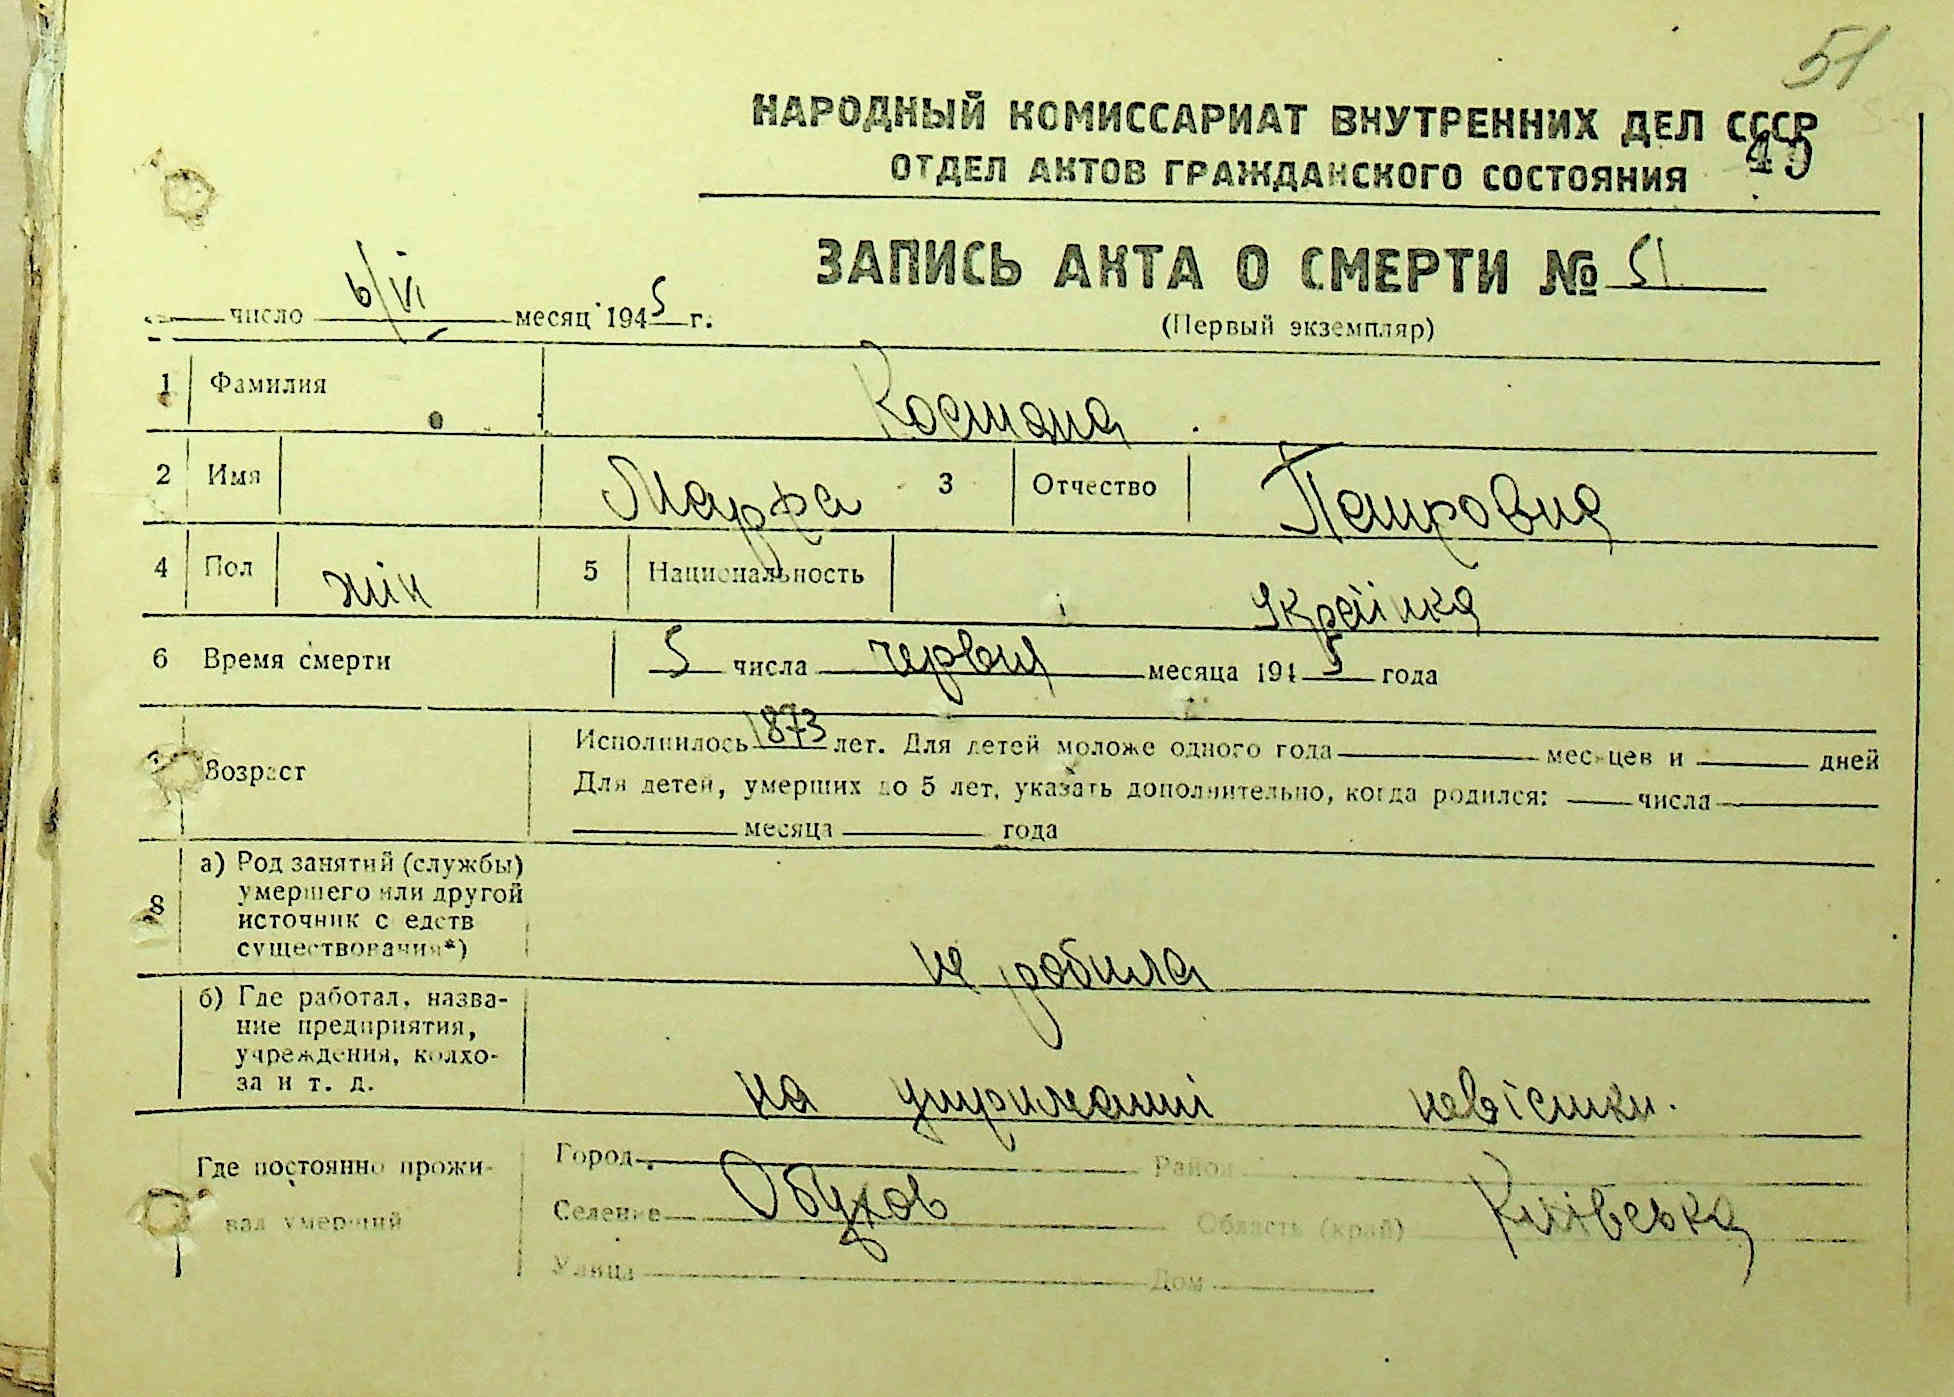 51
НАРОДНЫЙ КОМИССАРИАТ ВНУТРЕННИХ ДЕЛ СССР
ОТДЕЛ АКТОВ ГРАЖДАНСКОГО СОСТОЯНИЯ
ЗАПИСЬ АКТА О СМЕРТИ № 51
число 6/VI месяц 1945 г.
(Первый экземпляр)
1 Фамилия
2 Имя Марфа 3 Отчество Петровна
4 Пол жін 5 Национальность Українка
6 Время смерти 5 числа червня месяца 1945 года
Возраст Исполнилось 1873 лет. Для детей моложе одного года месяцев и дней
Для детей, умерших до 5 лет, указать дополнительно, когда родился: числа
месяца года
8 а) Род занятий (службы)
умершего или другой
источник средств
существования*)
не робила
б) Где работал, назва-
ние предприятия,
учреждения, колхо-
за и т. д.
на утриманні невістки.
Где постоянно прожи-
вал умерший
Город Район
Селение Обухов Область (край) Київська
Улица Дом